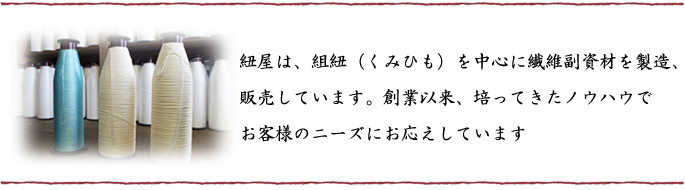 紐屋は、組紐（くみひも）を中心に繊維副資材を製造、
販売しています。創業以来、培ってきたノウハウで
お客様のニーズにお応えしています